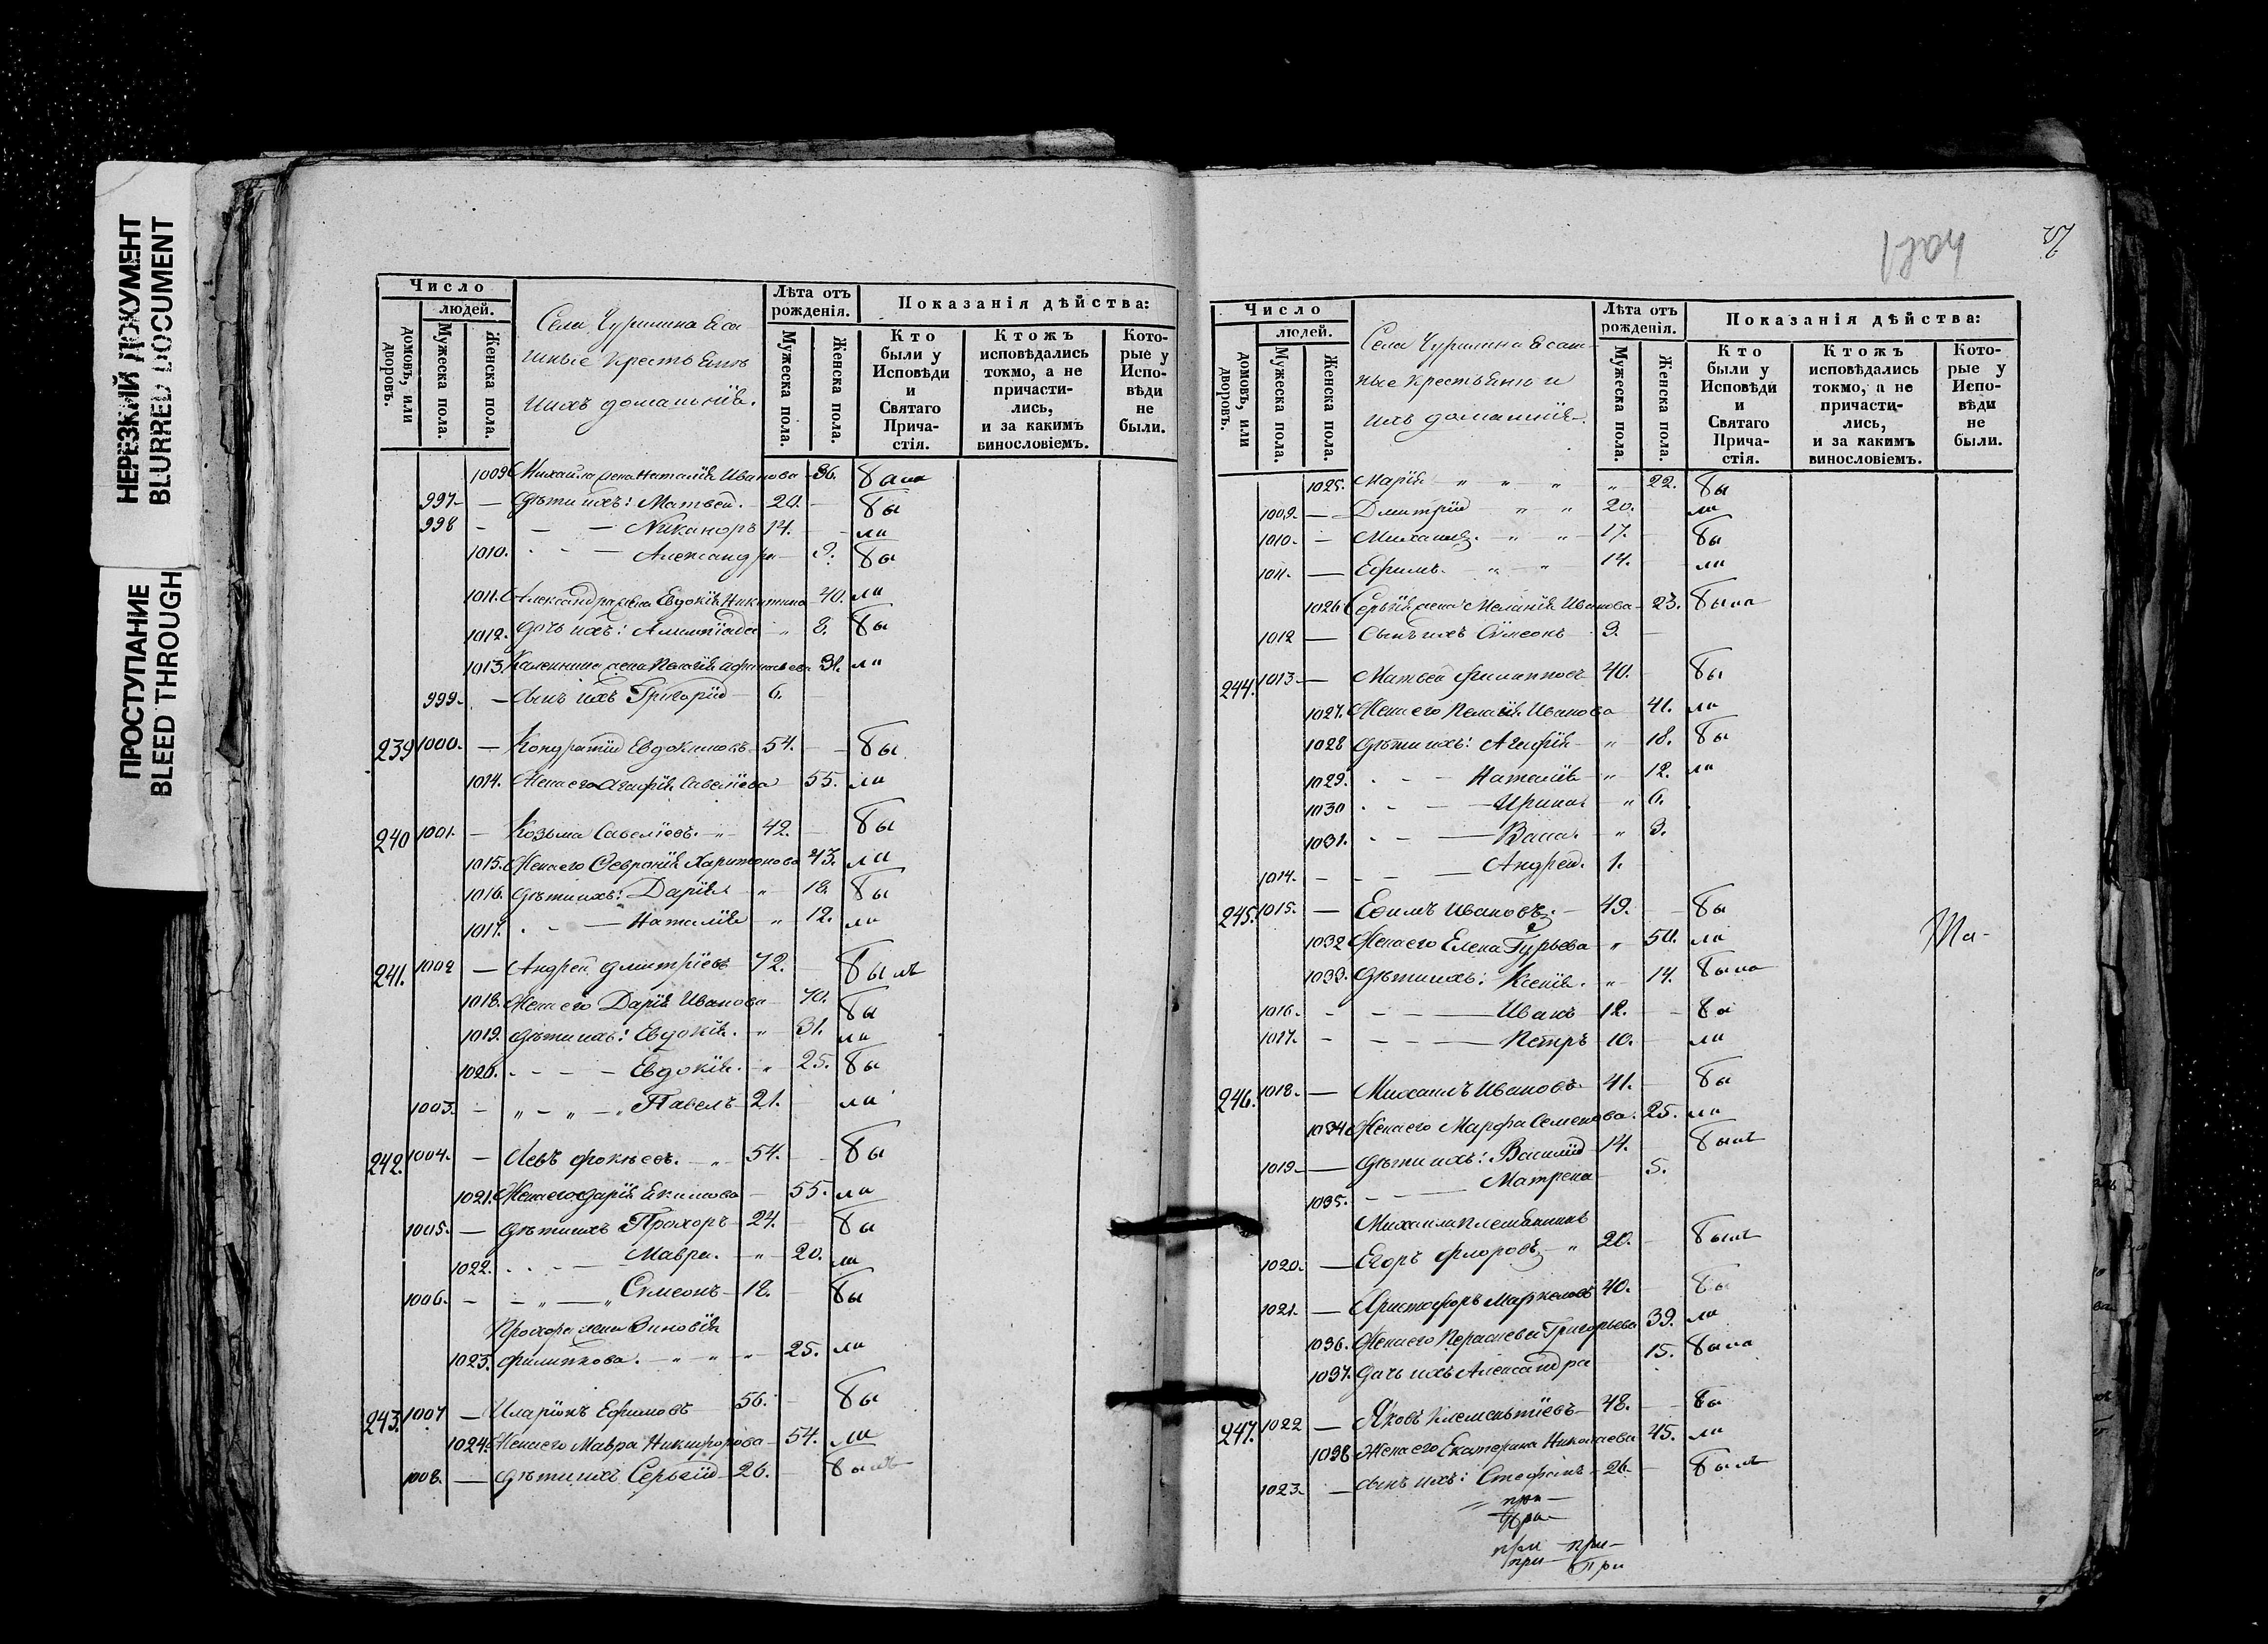 НЕРЕЗКИЙ ДОКУМЕНТ
BLURRED DOCUMENT
ПРОСТУПАНИЕ
BLEED THROUGH
Число
людей.
домовъ, или дворовъ.
Мужеска пола.
Женска пола.
Лѣта отъ рожденія.
Мужеска пола.
Женска пола.
Показанія дѣйства:
Кто были у Исповѣди и Святаго Прича-стія.
Ктожъ исповѣдались токмо, а не причасти-лись, и за какимъ винословіемъ.
Кото-рые у Испо-вѣди не были.
1009 Михайла жена Наталія Иванова 36. была
997. — Дѣти ихъ: Матвей. 20. бы
998 — Никаноръ 14. ли
1010. Александра 9. бы
1011. Александра жена Евдокія Никитина 40. ли
1012. Дочь ихъ: 8. бы
1013. жена Пелагія 31. ли
999. — Сынъ ихъ Григорій 6.
239 1000. — Кондратій Евдокимовъ 54. бы
1014. Жена его Агафія Савеліева 55. ли
240 1001. — Козьма Савеліевъ. 42. бы
1015. Жена его Февронія Харитонова 43. ли
1016. Дѣти ихъ: Дарія 18. бы
1017. Наталія 12. ли
241. 1002 — Андрей Дмитріевъ 72. былъ
1018. Жена его Дарія Иванова 70. бы
1019. Дѣти ихъ: Евдокія. 31. ли
1020. Евдокія. 25. бы
1003. Павелъ 21. ли
242. 1004. — Левъ Фокѣевъ. 54. бы
1021. Жена его Дарія Екимова 55. ли
1005. — Дѣти ихъ Прохоръ 24. бы
1022. Мавра. 20. ли
1006. Симеонъ 12. бы
Прохора жена Зиновія
1023. Филипкова. 25. ли
243. 1007 — Иларіонъ Ефимовъ 56. бы
1024. Жена его Мавра Никифорова 54. ли
1008. — Дѣти ихъ Сергій 26. былъ
Число
людей.
домовъ, или дворовъ.
Мужеска пола.
Женска пола.
ихъ домашнія.
Лѣта отъ рожденія.
Мужеска пола.
Женска пола.
Показанія дѣйства:
Кто были у Исповѣди и Святаго Прича-стія.
Ктожъ исповѣдались токмо, а не причасти-лись, и за какимъ винословіемъ.
Кото-рые у Испо-вѣди не были.
1025. Марія 22. бы
1009. — Дмитрій 20. ли
1010. — Михаилъ. 17. бы
1011. — Ефимъ. 14. ли
1026 Сергія жена Меланія Иванова 23. была
1012 — Сынъ ихъ Симеонъ 3.
244. 1013. — Матвей Филипповъ 40. бы
1027. Жена его Пелагія Иванова 41. ли
1028 Дѣти ихъ: Агафія 18. бы
1029. Наталія 12. ли
1030 Ирина 6.
1031. Васса. 3.
1014. Андрей. 1.
245. 1015. — Ефимъ Ивановъ. 49. бы
1032 Жена его Елена Гурьева 50. ли
1033. Дѣти ихъ: Ксенія. 14. была
1016. Иванъ 12. бы
1017. Петръ 10. ли
246. 1018. — Михаилъ Ивановъ 41. бы
1034 Жена его Марфа Семенова. 25. ли
1019. — Дѣти ихъ: Василій 14. былъ
1035. Матрена 5.
Михаила племянникъ
1020. — Егоръ Флоровъ 20. былъ
1021. — Христофоръ Маркеловъ 40. бы
1036. Жена его Параскева Григорьева 39. ли
1037. Дочь ихъ Александра 15. была
247. 1022 — Яковъ Клементіевъ 48. бы
1038 Жена его Екатерина Николаева 45. ли
1023. — Сынъ ихъ: Стефанъ 26. былъ
при
при
при при